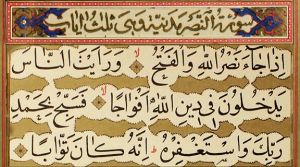 سورة النصر مدنية وهى ثلاث ايات
اِذَا جَاءَ نَصْرُ اللّٰهِ وَالْفَتْحُ ۙ وَرَاَيْتَ النَّاسَ
يَدْخُلُونَ فِي دِينِ اللّٰهِ اَفْوَاجًا ۙ فَسَبِّحْ بِحَمْدِ
رَبِّكَ وَاسْتَغْفِرْهُ ط اِنَّهُ كَانَ تَوَّابًا